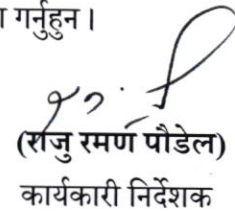 गर्नुहुन ।
(राजु रमण पौडेल)
कार्यकारी निर्देशक